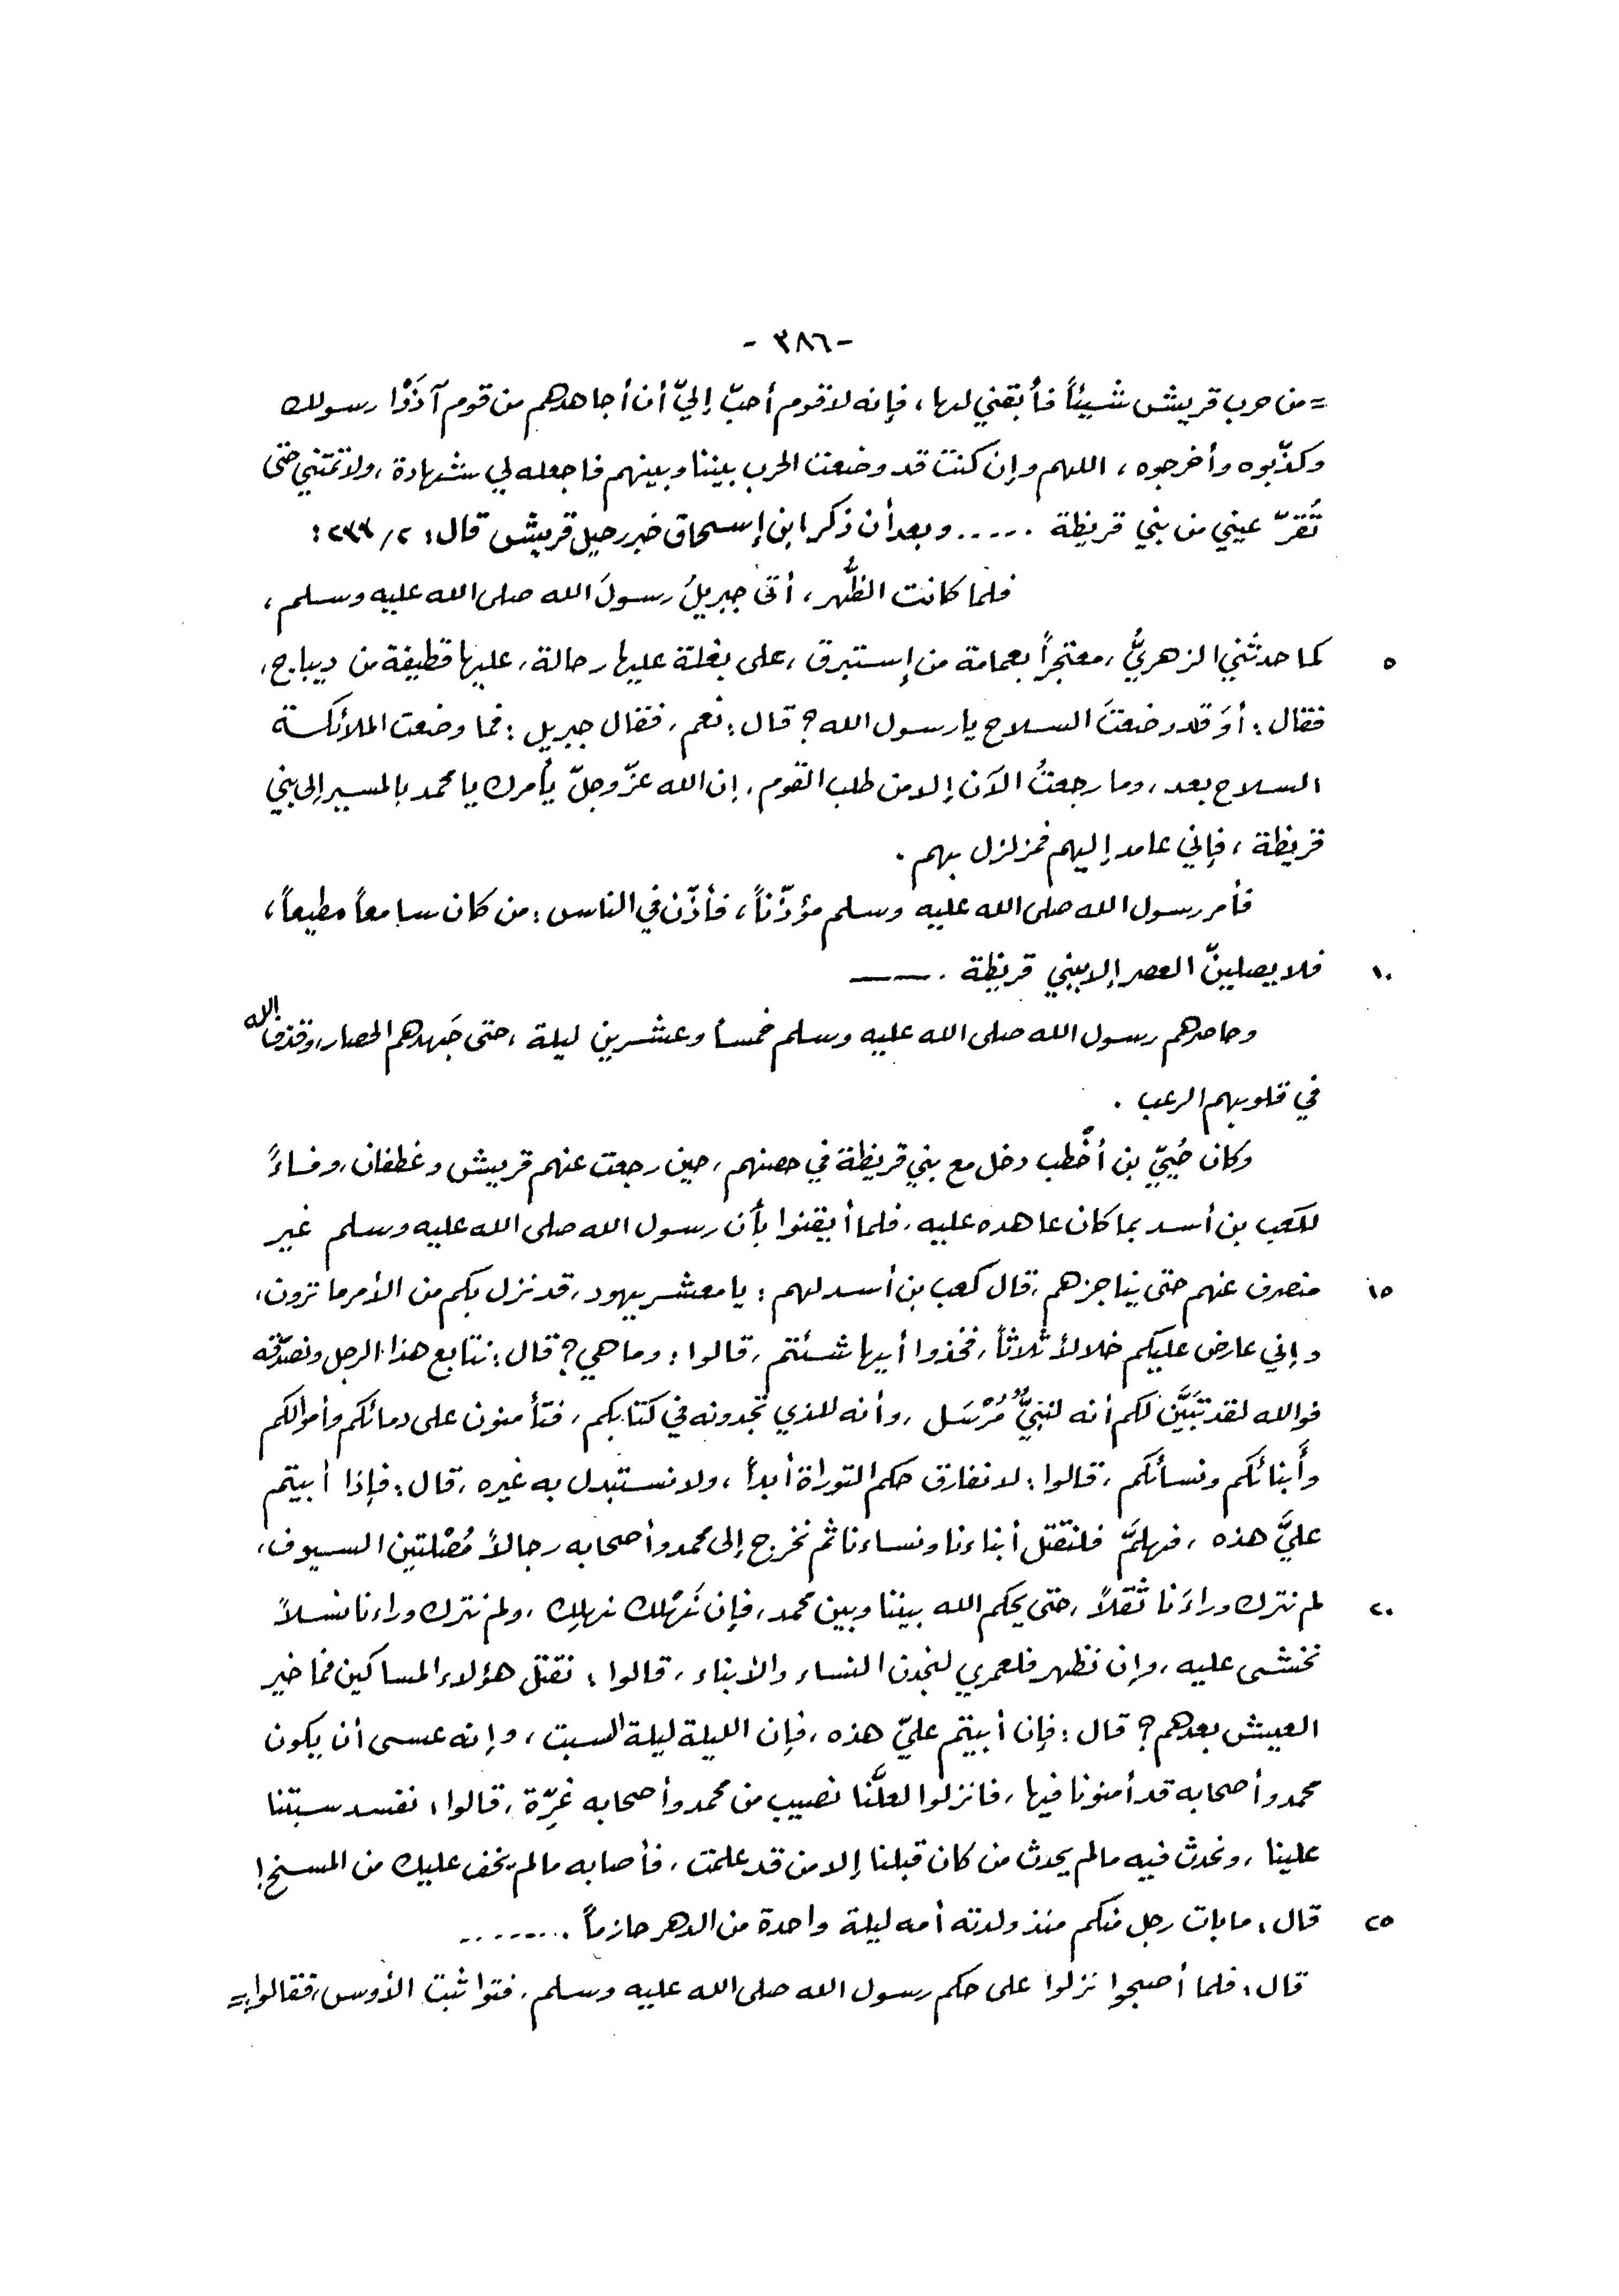 - ٣٨٦ -
= من حرب قريش شيئاً فأبقني لها، فإنه لا قوم أحبّ إليّ أن أجاهدهم من قوم آذَوْا رسولك
وكذّبوه وأخرجوه، اللهم وإن كنت قد وضعت الحرب بيننا وبينهم فاجعله لي شهادة، ولا تمتني حتى
تُقرّ عيني من بني قريظة ..... وبعد أن ذكر ابن إسحاق خبر رحيل قريش قال: ٢/ ٢٣٣:
فلما كانت الظُّهر، أتى جبريلُ رسولَ الله صلى الله عليه وسلم،
٥ كما حدثني الزهريُّ، معتجراً بعمامة من إستبرق، على بغلة عليها رحالة، عليها قطيفة من ديباج،
فقال: أوَ قد وضعتَ السلاح يا رسول الله؟ قال: نعم، فقال جبريل: فما وضعت الملائكة
السلاح بعد، وما رجعتُ الآن إلا من طلب القوم، إن الله عزّ وجلّ يأمرك يا محمد بالمسير إلى بني
قريظة، فإني عامد إليهم فمزلزل بهم.
فأمر رسول الله صلى الله عليه وسلم مؤذّناً، فأذّن في الناس: من كان سامعاً مطيعاً،
١٠ فلا يصلينّ العصر إلا ببني قريظة.
وحاصرهم رسول الله صلى الله عليه وسلم خمساً وعشرين ليلة، حتى جَهدهم الحصار، وقذف الله
في قلوبهم الرعب.
وكان حُييّ بن أخْطب دخل مع بني قريظة في حصنهم، حين رجعت عنهم قريش وغطفان، وفاءً
لكعب بن أسد بما كان عاهده عليه، فلما أيقنوا بأن رسول الله صلى الله عليه وسلم غير
١٥ منصرف عنهم حتى يناجزهم، قال كعب بن أسد لهم: يا معشر يهود، قد نزل بكم من الأمر ما ترون،
وإني عارض عليكم خلالاً ثلاثاً، فخذوا أيها شئتم، قالوا: وما هي؟ قال: نتابع هذا الرجل ونصدّقه
فوالله لقد تَبَيَّن لكم أنه لنبيٌّ مُرْسَل، وأنه للذي تجدونه في كتابكم، فتأمنون على دمائكم وأموالكم
وأَبنائكم ونسائكم، قالوا: لا نفارق حكم التوراة أبداً، ولا نستبدل به غيره، قال: فإذا أبيتم
عليَّ هذه، فهلمَّ فلنقتل أبناءنا ونساءنا ثم نخرج إلى محمد وأصحابه رجالاً مُصْلتين السيوف،
٢٠ لم نترك وراءَنا ثَقَلاً، حتى يحكم الله بيننا وبين محمد، فإن نَهْلك نهلِك، ولم نترك وراءنا نسلاً
نخشى عليه، وإن نظهر فلعمري لنجدن النساء والأبناء، قالوا: نقتل هؤلاء المساكين فما خير
العيش بعدهم؟ قال: فإن أبيتم عليّ هذه، فإن الليلة ليلة السبت، وإنه عسى أن يكون
محمد وأصحابه قد أمنونا فيها، فانزلوا لعلَّنا نصيب من محمد وأصحابه غِرّة، قالوا: نفسد سبتنا
علينا، ونحدث فيه ما لم يحدث من كان قبلنا إلا من قد علمت، فأصابه ما لم يخف عليك من المسخ!
٢٥ قال: ما بات رجل منكم منذ ولدته أمه ليلة واحدة من الدهر حازماً ........
قال: فلما أصبحوا نزلوا على حكم رسول الله صلى الله عليه وسلم، فتواثبت الأوس، فقالوا: =